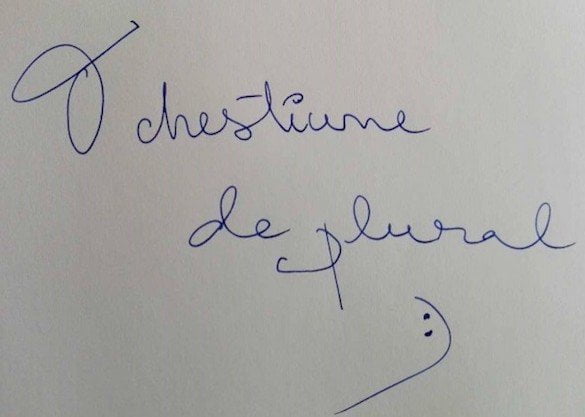 O chestiune
de plural
:)